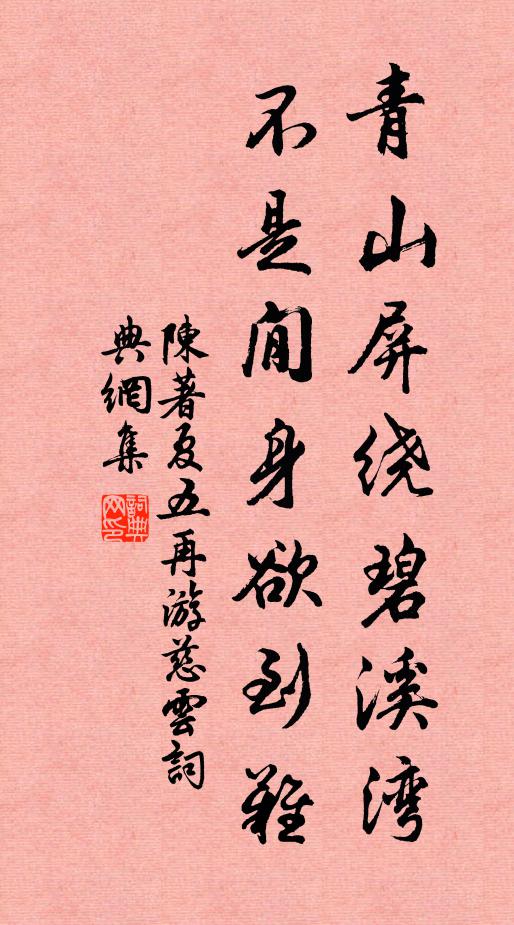 青山屏绕碧溪湾
不是閒身欲到難
陳著夏五再游慈雲詞
典網集
詞典网印